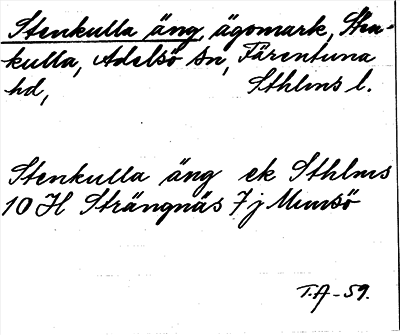 Stenkulla äng, ägomark, Sten-
kulla, Adelsö sn, Färentuna
hd, Sthlms l.
Stenkulla äng ek Sthlms
10 H Strängnäs 7 j Munsö
T.A-59.